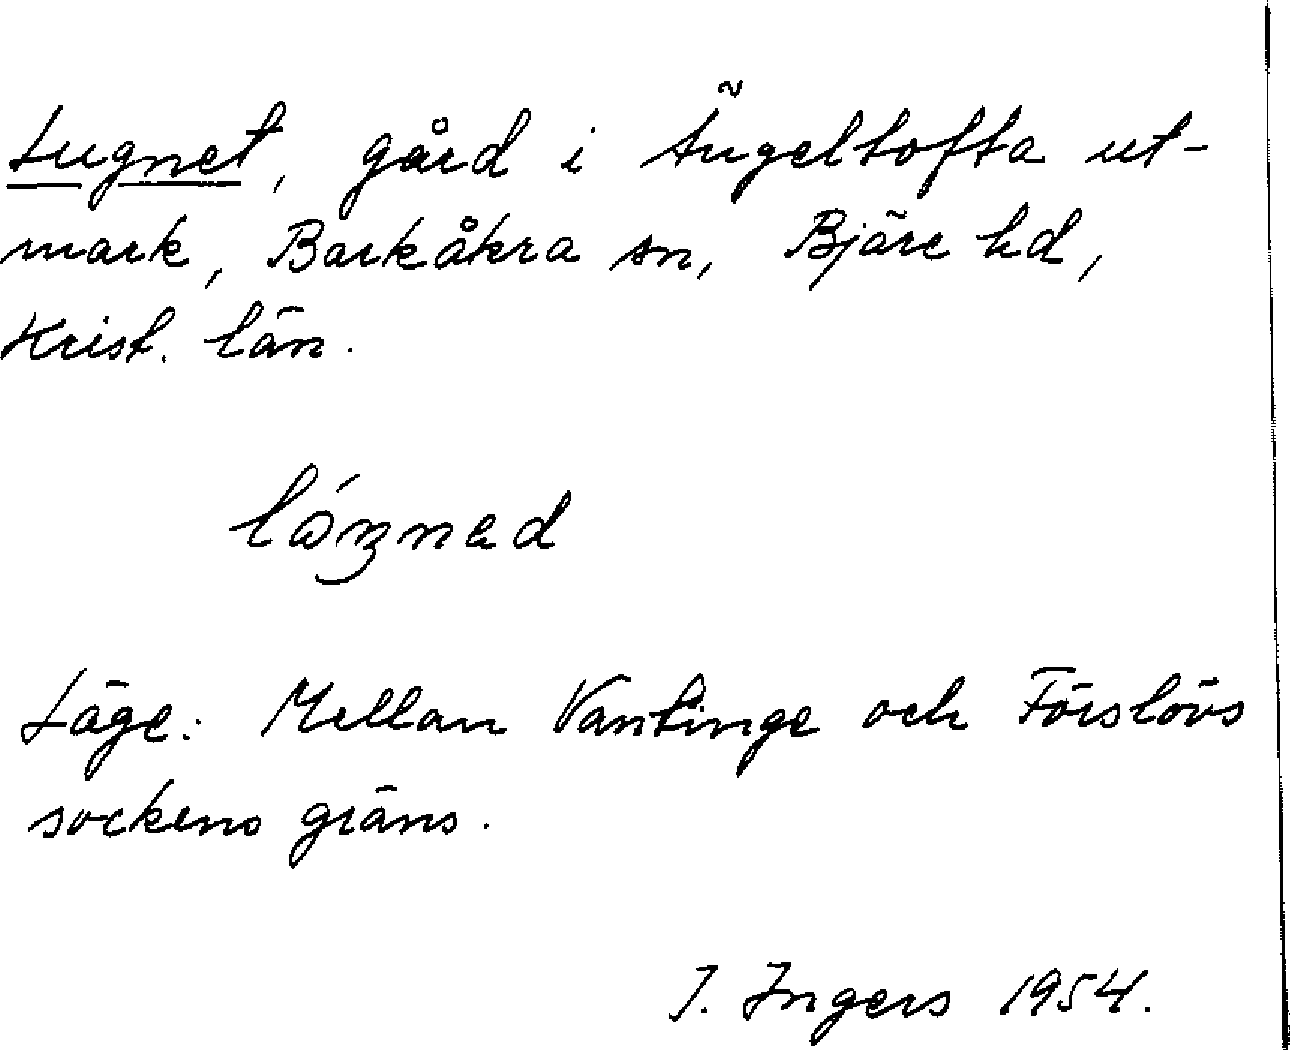 Lugnet, gård i Ängeltofta ut-
mark, Barkåkra sn, Bjäre hd,
Krist. län.
Läge: Mellan Vantinge och Förslövs
sockens gräns.
I. Ingers 1954.